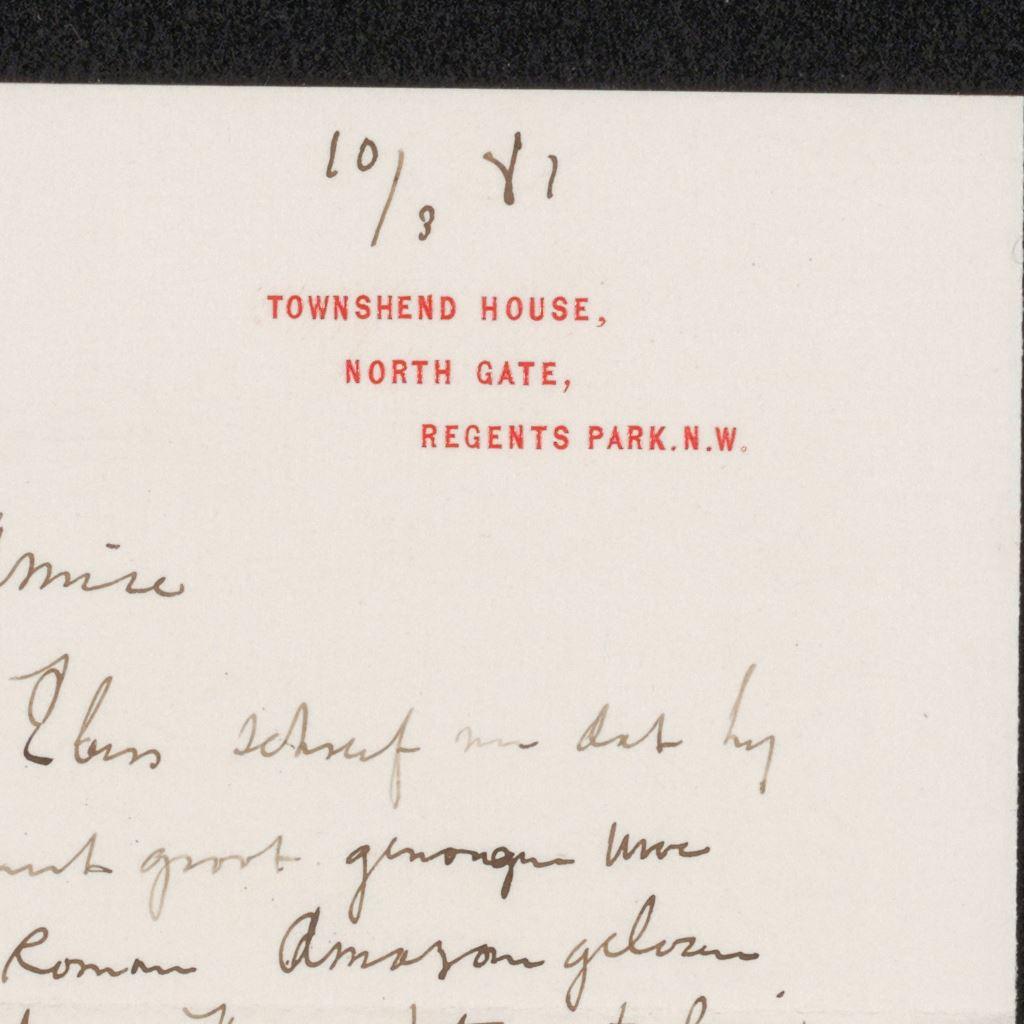 10/3 81
TOWNSHEND HOUSE,
NORTH GATE,
REGENTS PARK. N.W.
Amice
Ebers schreef me dat hij
met groot genoegen Uwe
Roman Amazone gelezen